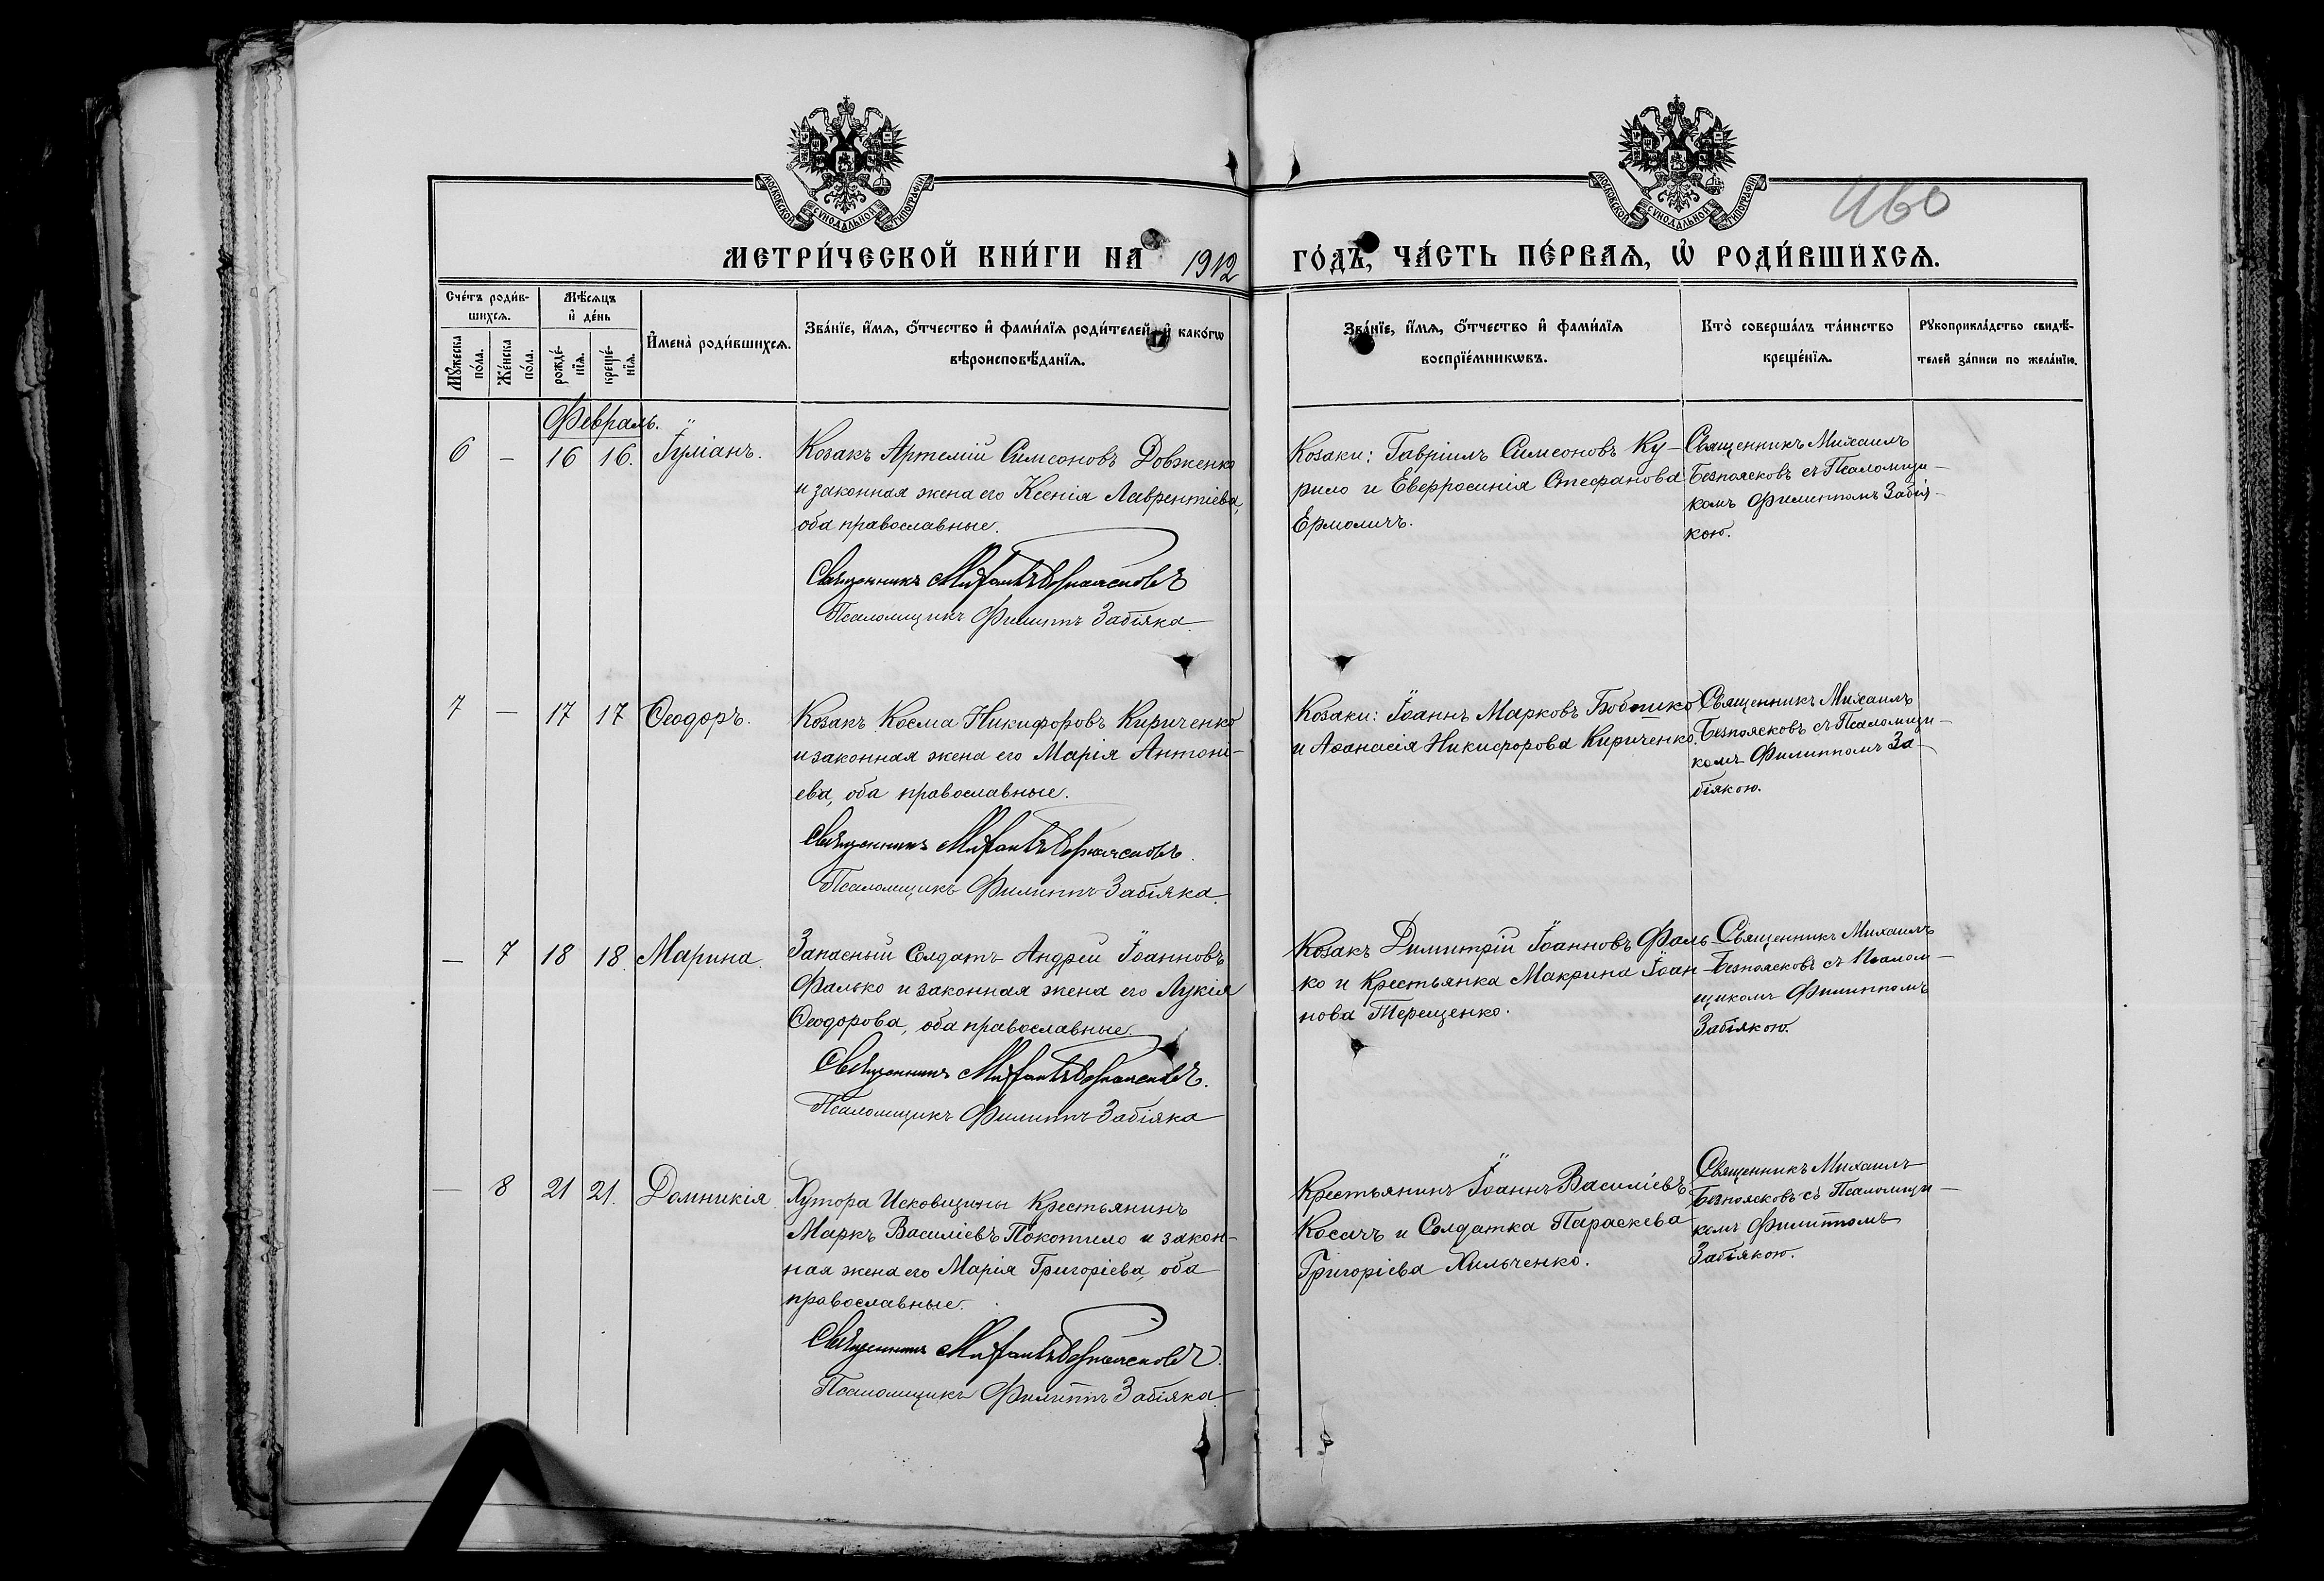 МОСКОВСКОЙ СѴНОДАЛЬНОЙ ТИПОГРАФІИ
МОСКОВСКОЙ СѴНОДАЛЬНОЙ ТИПОГРАФІИ
460
МЕТРИ́ЧЕСКОЙ КНИ́ГИ НА 1912 ГО́ДЪ, ЧА́СТЬ ПЕ́РВАѦ, Ѡ҆ РОДИ́ВШИХСѦ.
Сче́тъ роди́в-
шихсѧ.
Мꙋ́жеска по́ла.
Же́нска по́ла.
Мѣ́сѧцъ
и҆ де́нь
рожде́-
нїѧ.
креще́-
нїѧ.
И҆мена̀ роди́вшихсѧ.
Зва́нїе, и҆́мѧ, ѻ҆́тчество и҆ фами́лїѧ роди́телей, и҆ како́гѡ
вѣроисповѣ́данїѧ.
Зва́нїе, и҆́мѧ, ѻ҆́тчество и҆ фами́лїѧ
воспрїе́мникѡвъ.
Кто̀ соверша́лъ та́инство
креще́нїѧ.
Рꙋкоприкла́дство свидѣ́-
телей за́писи по жела́нїю.
Февраль.
6 — 16 16. Іуліанъ.
Козакъ Артемій Симеоновъ Довженко
и законная жена его Ксенія Лаврентіева,
оба православные.
Священникъ Михаилъ Безпоясковъ
Псаломщикъ Филиппъ Забіяка.
Козаки: Гавріилъ Симеоновъ Ку-
рило и Евфросинія Стефанова
Ермоличъ.
Священникъ Михаилъ
Безпоясковъ съ Псаломщи-
комъ Филиппомъ Забія-
кою.
7 — 17 17 Ѳеодоръ.
Козакъ Косма Никифоровъ Кириченко
и законная жена его Марія Антоні-
ева, оба православные.
Священникъ Михаилъ Безпоясковъ.
Псаломщикъ Филиппъ Забіяка.
Козаки: Іоаннъ Марковъ
и Аѳанасія Никифорова Кириченко.
Священникъ Михаилъ
Безпоясковъ съ Псаломщи-
комъ Филиппомъ За-
біякою.
— 7 18 18. Марина.
Запасный Солдатъ Андрей Іоанновъ
Фалько и законная жена его Лукія
Ѳеодорова, оба православные.
Священникъ Михаилъ Безпоясковъ.
Псаломщикъ Филиппъ Забіяка
Козакъ Димитрій Іоанновъ Фаль-
ко и Крестьянка Макрина Іоан-
нова Терещенко.
Священникъ Михаилъ
Безпоясковъ съ Псалом-
щикомъ Филиппомъ
Забіякою.
— 8 21 21. Домникія.
Хутора Исковщины Крестьянинъ
Маркъ Василіевъ Покотило и закон-
ная жена его Марія Григоріева, оба
православные.
Священникъ Михаилъ Безпоясковъ.
Псаломщикъ Филиппъ Забіяка.
Крестьянинъ Іоаннъ Василіевъ
Косачъ и Солдатка Параскева
Григоріева Хильченко.
Священникъ Михаилъ
Безпоясковъ съ Псаломщи-
комъ Филиппомъ
Забіякою.